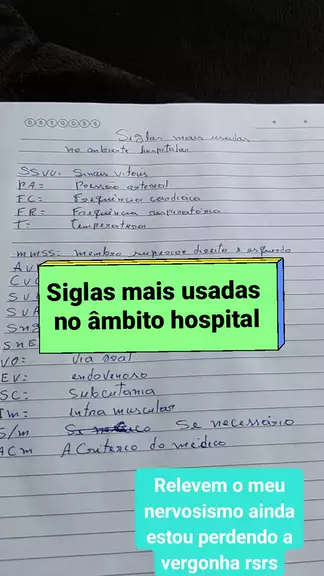 Siglas mais usadas
no ambiente hospitalar
SSVV: Sinais Vitais
PA: Pressão arterial
FC: Frequência cardíaca
FR: Frequência respiratória
T: Temperatura
mmss: membro superior direito e esquerdo
Siglas mais usadas
no âmbito hospital
VO: Via oral
EV: endovenoso
SC: Subcutania
Im: intra muscular
S/m Se necessário
ACm A Criterio do médico
Relevem o meu
nervosismo ainda
estou perdendo a
vergonha rsrs